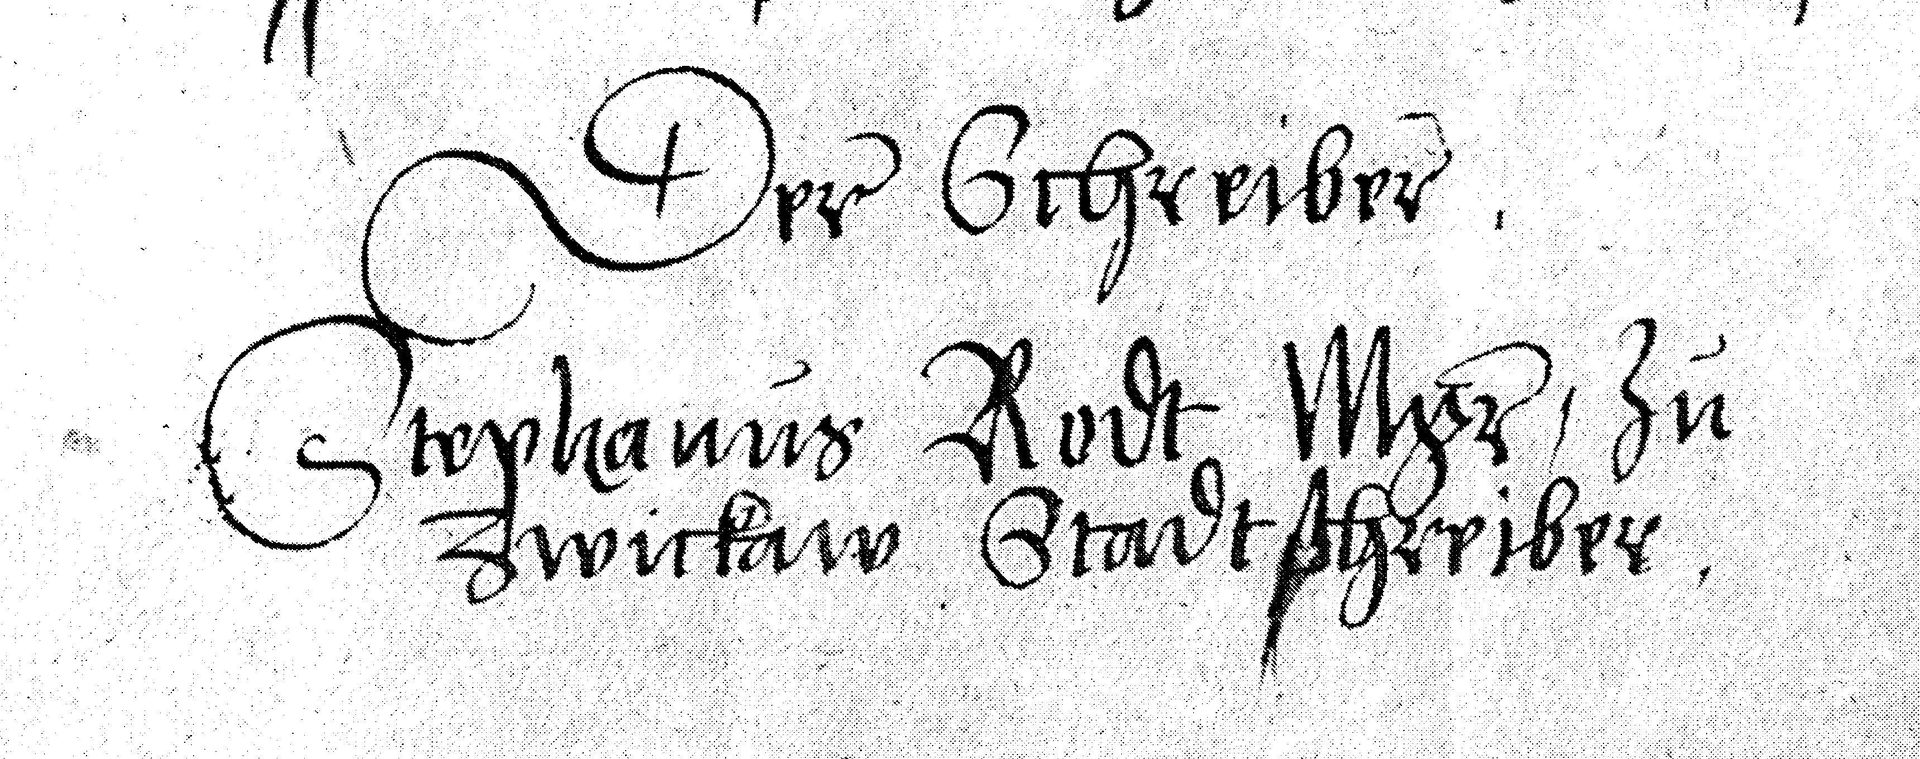 Der Schreiber.
Stephanus Rodt Mgr, Zu
Zwickaw Stadtschreiber.